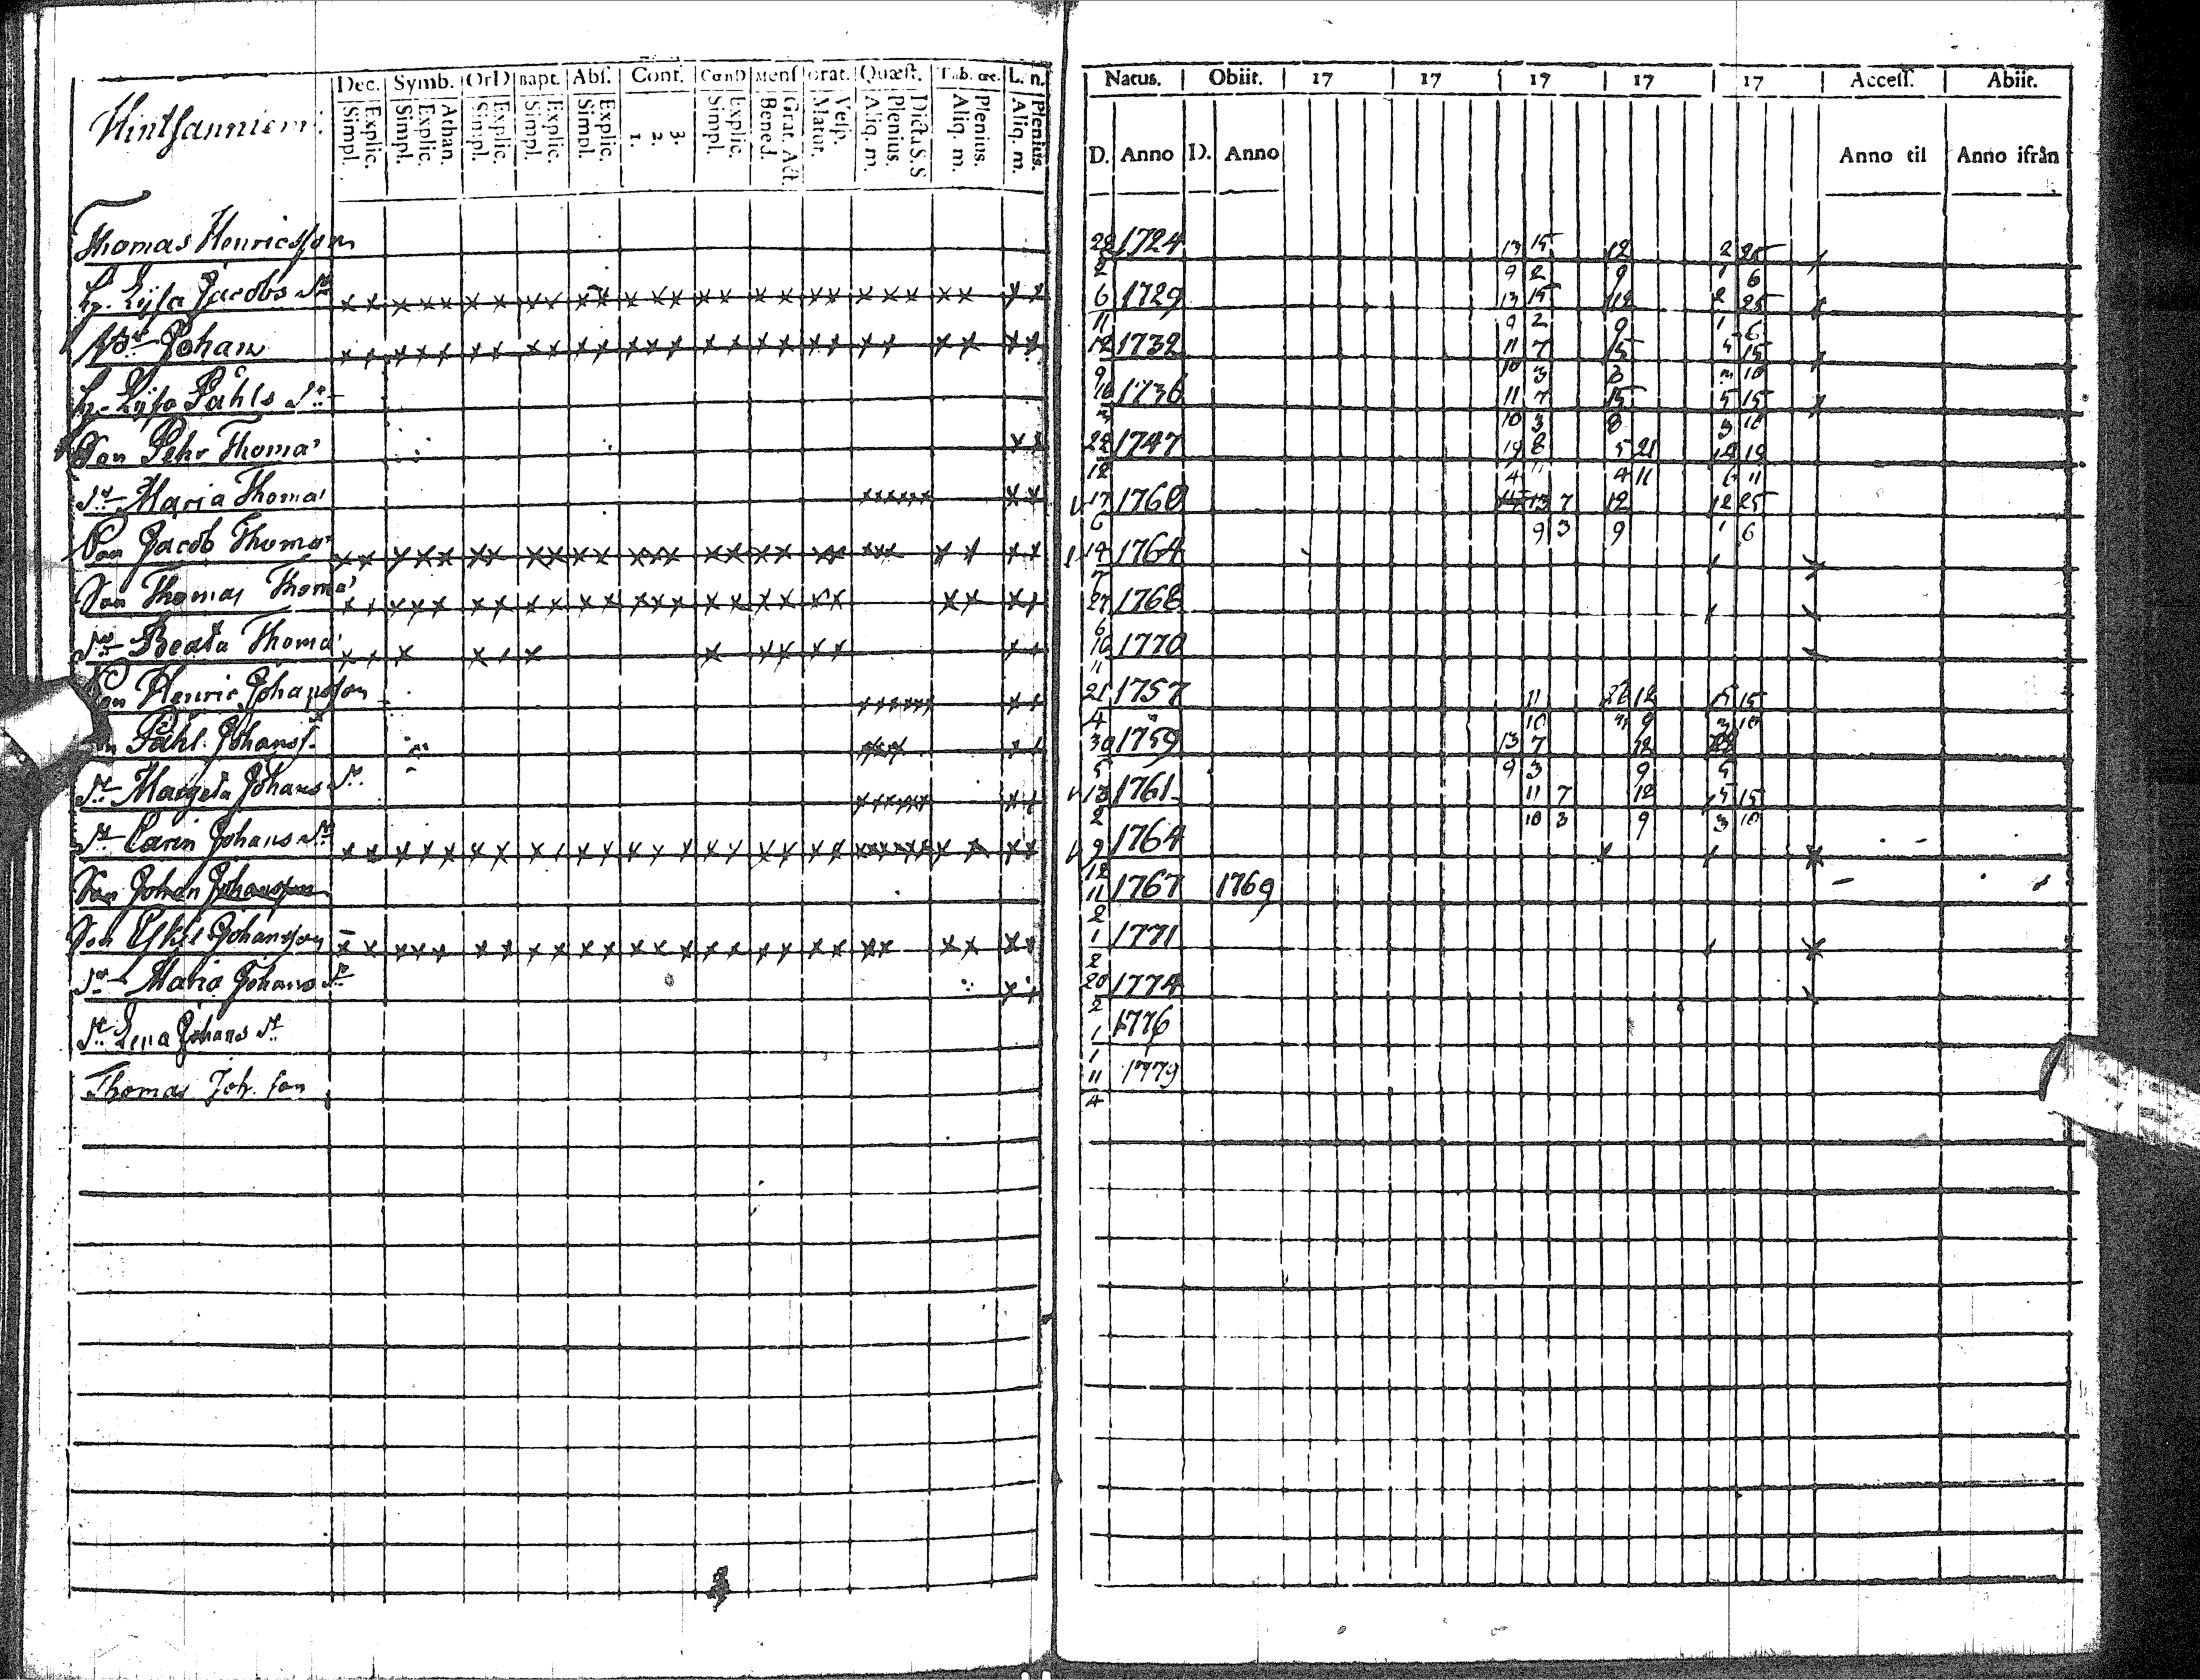 Dec. Symb. OrD Bapt. Abs. Conf. CœnD Mens Orat. Quæst. Tab. œc. L. n. Natus. Obiit. 17 17 17 17 17 Access. Abiit.
Hintsanniemi
Simpl. Explic. Simpl. Explic. Athan. Simpl. Explic. Simpl. Explic. Simpl. Explic. 1. 2. 3. Simpl. Explic. Bened. Grat. Act. Matut. Vesp. Aliq. m. Plenius. Dicta S. S Aliq. m. Plenius. Aliq. m. Plenius. D. Anno D. Anno Anno til Anno ifrån
Thomas Henricsson 22/2 1724 13/9 15/2 12/9 2/1 25/6
H. Lijsa Jacobs dr 6/11 1729 13/9 15/2 12/9 2/1 25/6
Johan 12/9 1732 11/10 7/3 15/8 5/3 15/10
H. Lijsa Påhls dr 16 1736 11/10 7/3 15/8 5/3 15/10
Son Pehr Thomas 22/12 1747 19/4 8 5/4 21/11 12/6 19/11
Dr Maria Thomas 17/6 1762 13/9 7/3 12/9 12/1 25/6
Son Jacob Thomas 14/7 1764
Son Thomas Thomas 27/6 1768
Dr Beata Thomas 10/11 1770
Son Henric Johansson 21/4 1757 11/10 12/9 5/3 15/10
Påhl Johanss. 30/5 1759 13/9 7/3 12/9
Dr Margeta Johans dr 13/2 1761 11/10 7/3 12/9 5/3 15/10
Dr Carin Johans dr 9/12 1764
Son Johan Johansson 11/2 1767 1769
Son Eskil Johansson 1/2 1771
Dr Maria Johans dr 20/2 1774
Dr Lena Johans dr 1/1 1776
Thomas Joh. son 11/4 1779